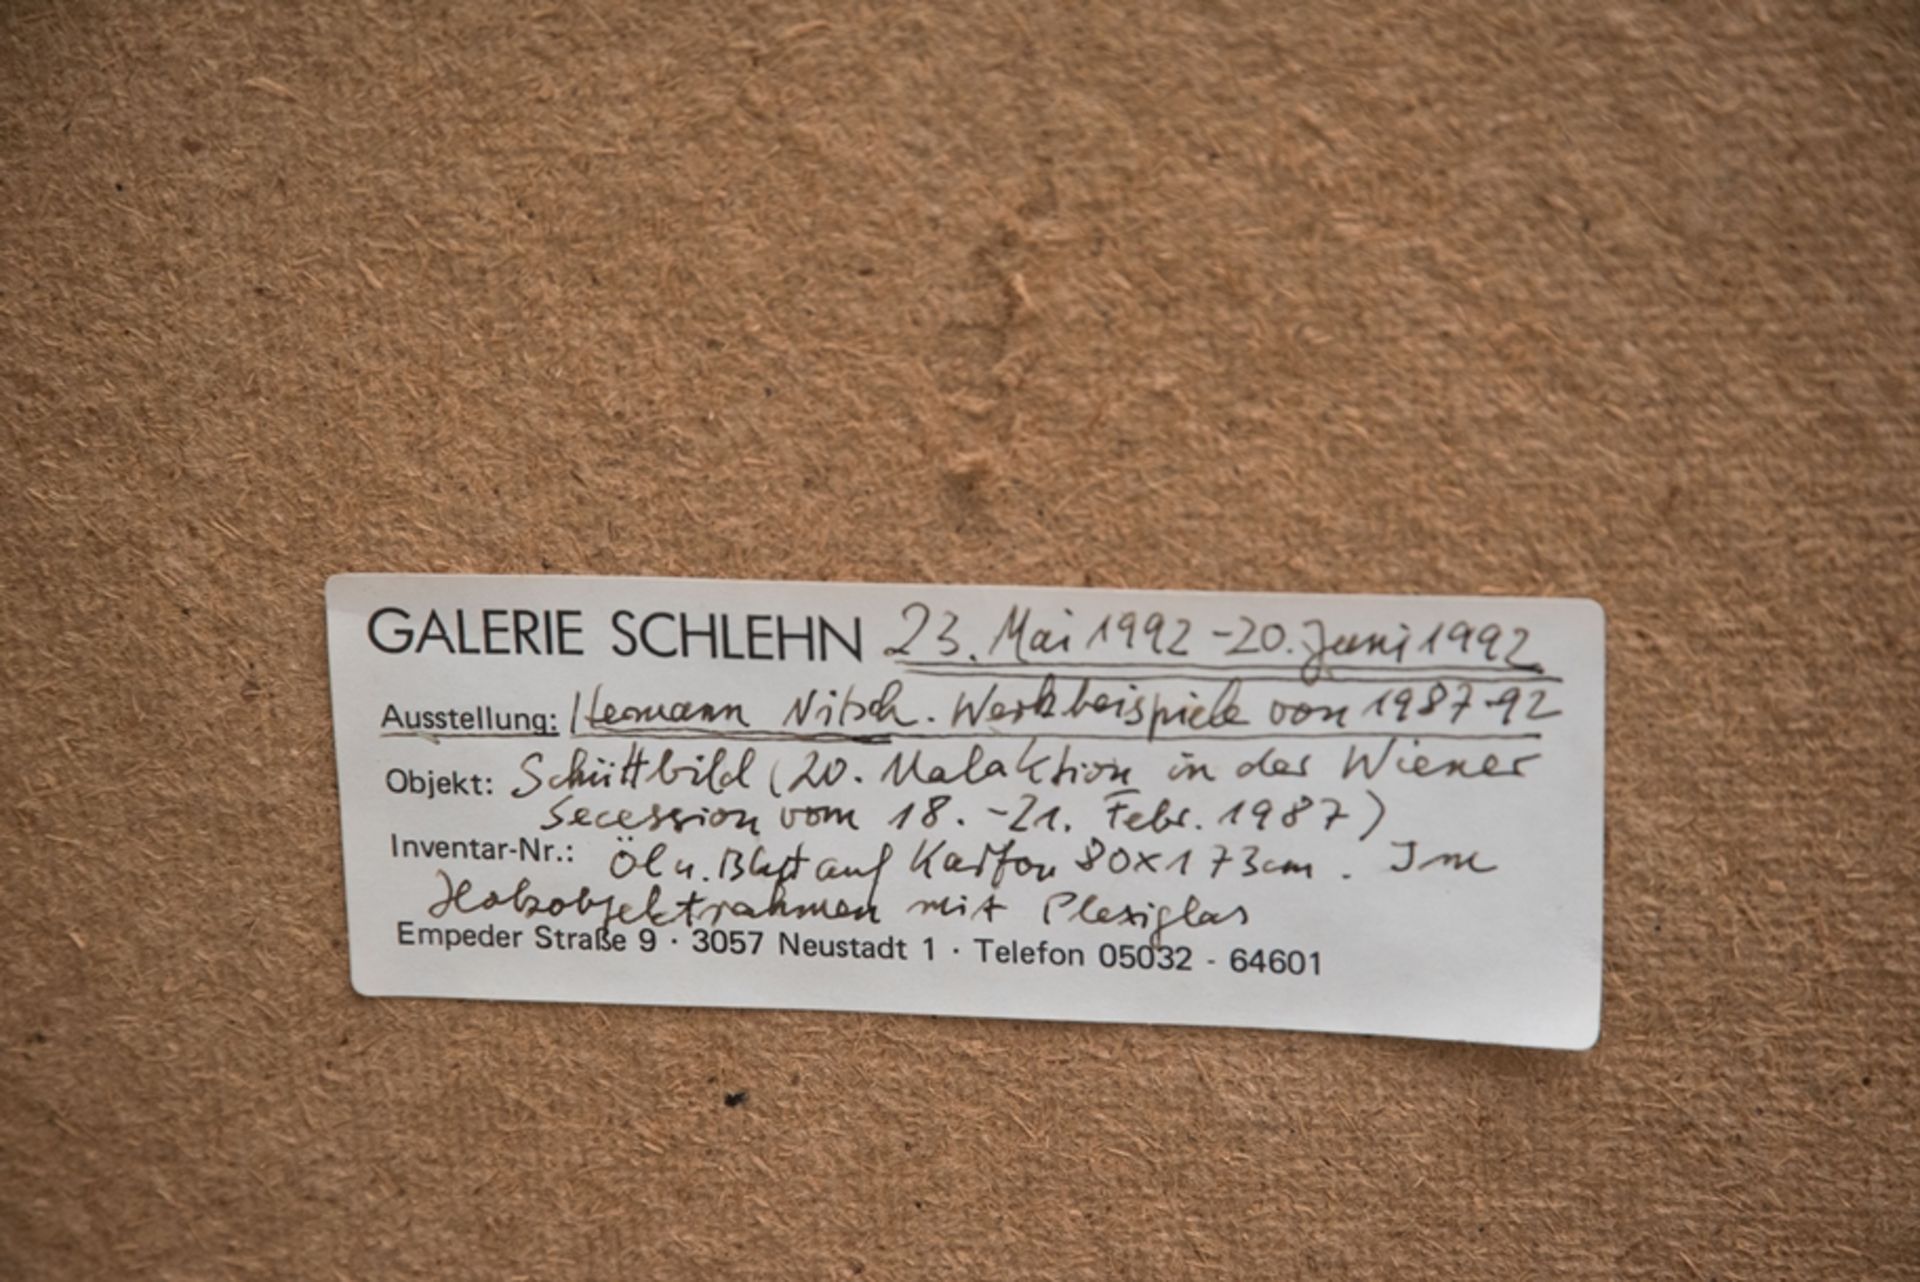 GALERIE SCHLEHN 23. Mai 1992 - 20. Juni 1992
Ausstellung: Hermann Nitsch. Werkbeispiele von 1987-92
Objekt: Schüttbild (20. Malaktion in der Wiener
Secession vom 18. - 21. Febr. 1987)
Inventar-Nr.: Öl u. Blut auf Karton 80x173cm. Im
Holzobjektrahmen mit Plexiglas
Empeder Straße 9 · 3057 Neustadt 1 · Telefon 05032 - 64601